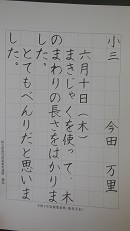 小三 今田 万里
六月十日(木)
まきじゃくを使って、木
のまわりの長さをはかりま
した。
とてもべんりだと思いま
した。